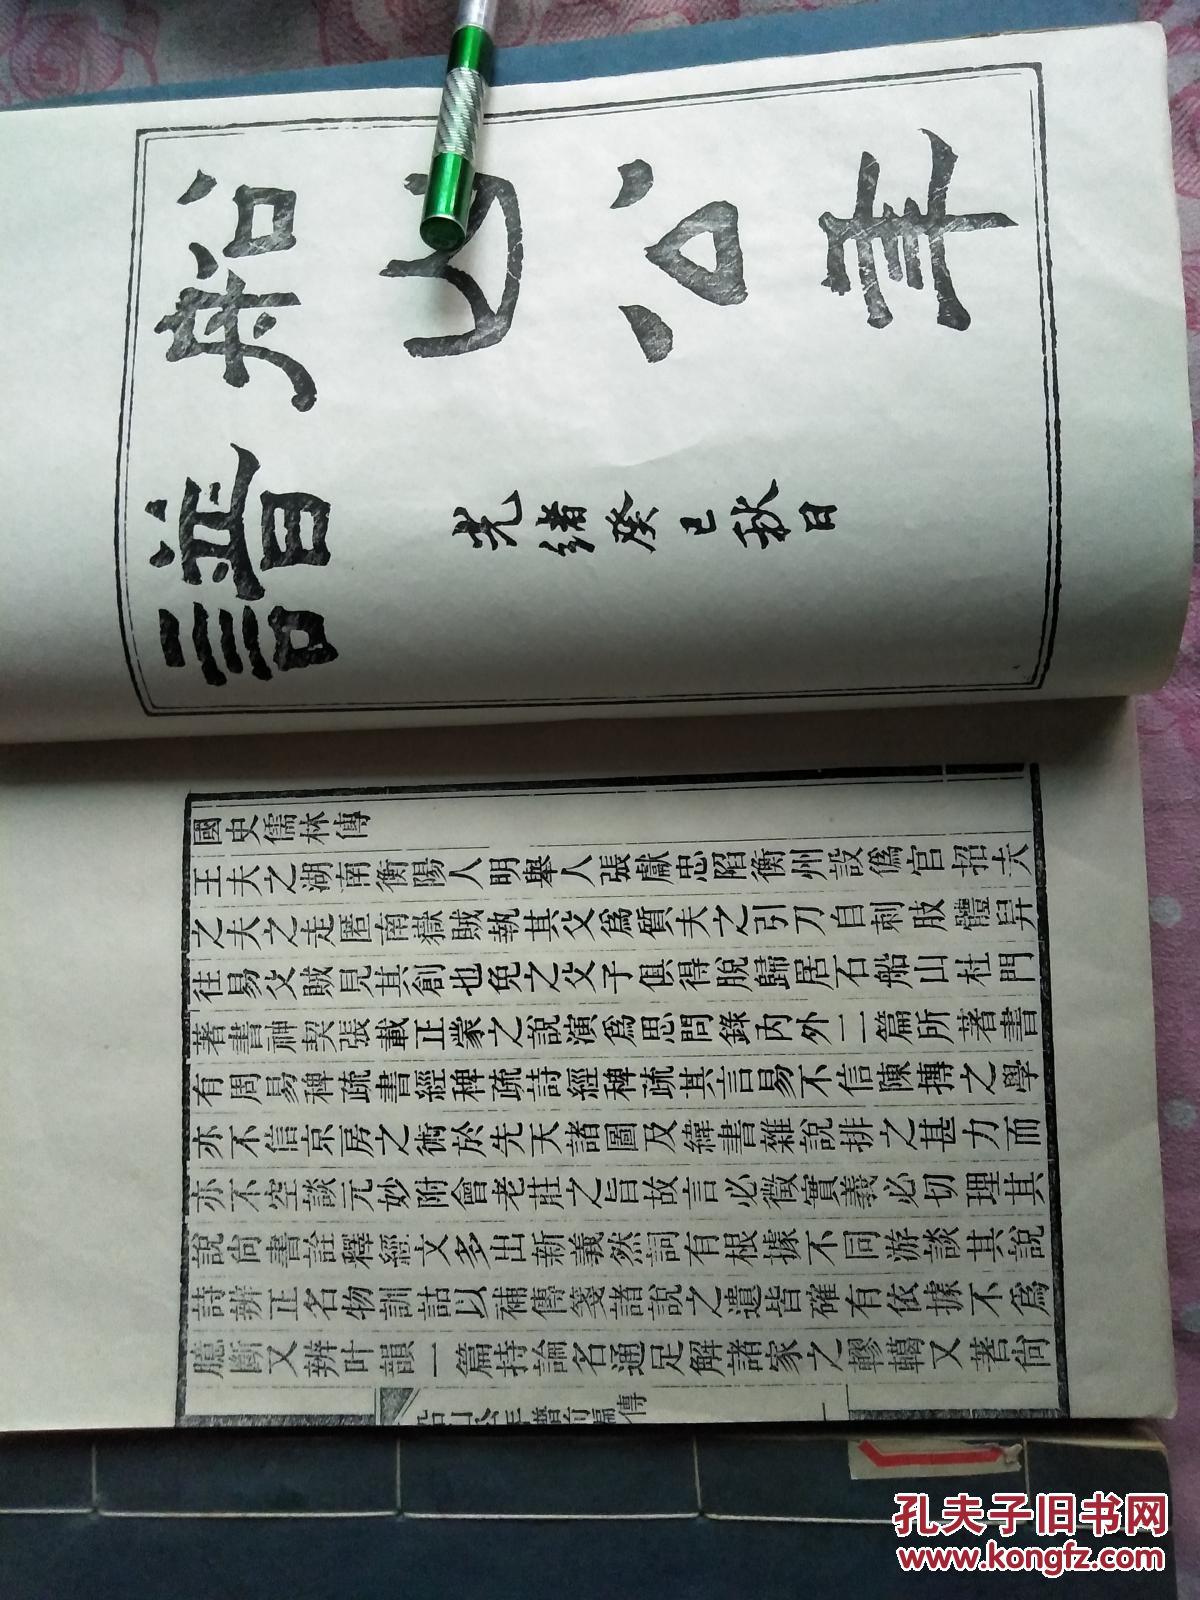 船山公年
譜
光緒癸巳秋日
國史儒林傳
王夫之湖南衡陽人明舉人張獻忠陷衡州設僞官招夫
之夫之走匿南嶽賊執其父爲質夫之引刀自刺肢體舁
往易父賊見其創也免之父子俱得脫歸居石船山杜門
著書神契張載正蒙之說演爲思問錄內外二篇所著書
有周易稗疏書經稗疏詩經稗疏其言易不信陳摶之學
亦不信京房之術於先天諸圖及緯書雜說排之甚力而
亦不空談元妙附會老莊之旨故言必徵實義必切理其
說尙書詮釋經文多出新義然詞有根據不同游談其說
詩辨正名物訓詁以補傳箋諸說之遺皆確有依據不爲
臆斷又辨叶韻一篇持論名通足解諸家之轇轕又著尙
船山公年譜前編傳
一
孔夫子旧书网
www.kongfz.com